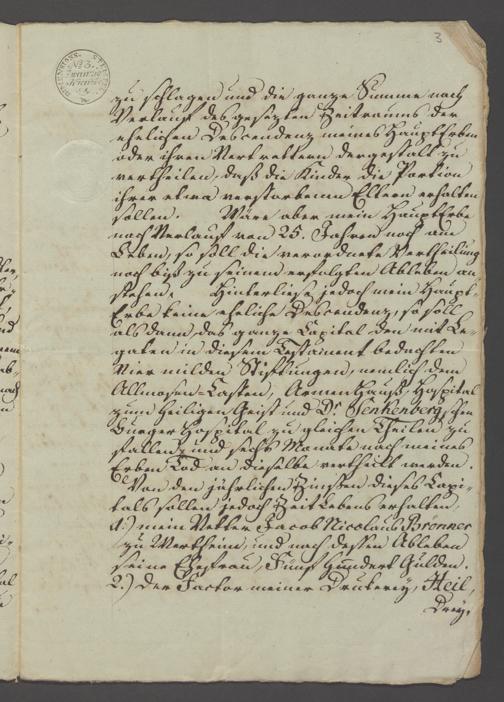 3
No. 3.
zu schlagen und die ganze Summe nach
Verlauf des gesezten Zeitraums der
ehelichen Descendenz meines Haupterben
oder ihren Vertrettern dergestalt zu
vertheilen, daß die Kinder die Portion
ihrer etwa verstorbenen Eltern erhalten
sollen. Wäre aber mein HauptErbe
nach Verlauf von 25. Jahren noch am
Leben, so soll die verordnete Vertheilung
noch biß zu seinem erfolgten Ableben an-
stehen. Hinterliese jedoch mein Haupt-
Erbe keine eheliche Descendenz, so soll
als dann das ganze Capital den mit Le-
gaten in diesem Testament bedachten
Vier milden Stiftungen, nemlich dem
Allmosen-Casten, ArmenHauß, Hospital
zum Heiligen Geist und Dr. Senkenbergschen
Bürger Hospital zu gleichen Theilen zu-
fallen, und sechs Monate nach meines
Erben Tod an dieselbe vertheilt werden.
Von den jährlichen Zinßen dieses Capi-
tals sollen jedoch Zeit Lebens erhalten,
1.) mein Vetter Jacob Nicolaus Bronner
zu Wertheim, und nach dessen Ableben
seine Ehefrau, Fünf Hundert Gulden.
2.) Der Factor meiner Druckerey, Heil,
Drey-